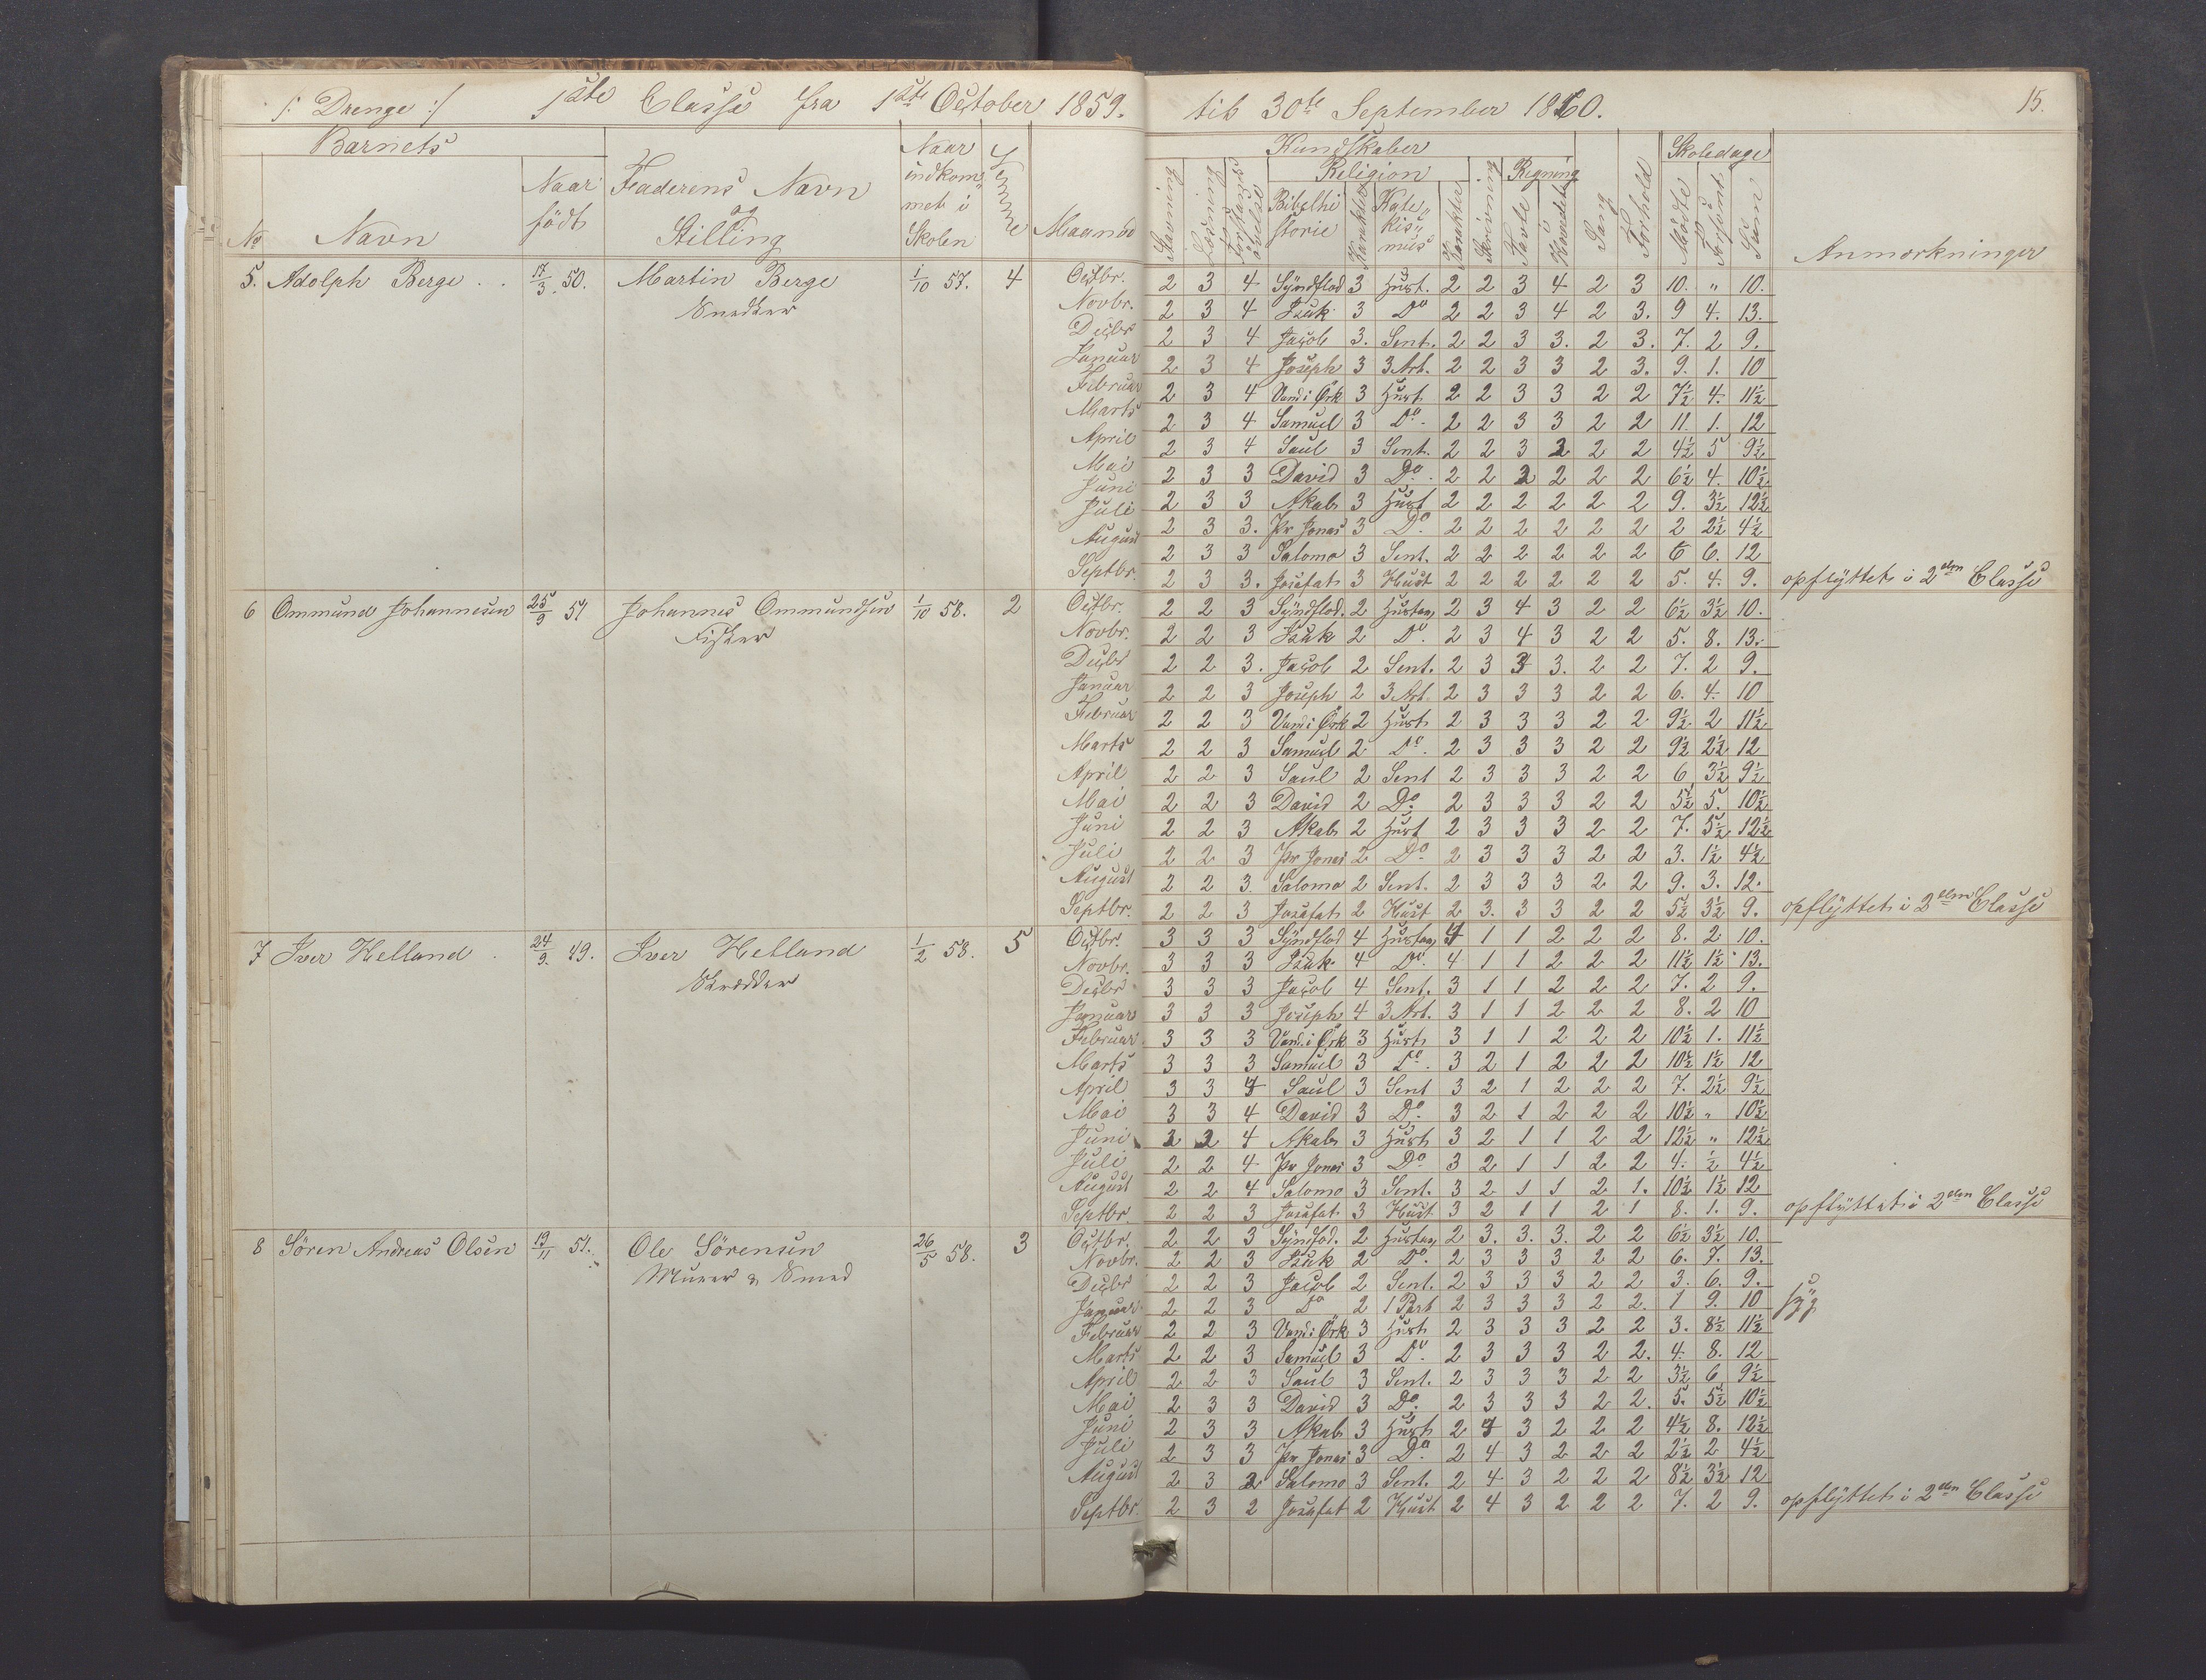 /: Drenge :/ 1ste Classe fra 1ste October 1859. til 30te September 1860. 15.
Barnets Naar Kundskaber Skoledage
Naar Faderens Navn indkom„ Religion Regning
født og met i Bibelhi Kate„
No Navn Stilling Skolen Maaned Stavning Læsning storie Karakter kis„ mus Karakter Skrivning Tavle Hovedet Sang Forhold Mødte Forsømt Sum Anmærkninger
5. Adolph Berge 17/3 50. Martin Berge 1/10 57. 4 Octbr. 2 3 4 Syndflod 3 Hust. 2 2 3 4 2 3 10. „ 10.
Snedker Novbr. 2 3 4 Isak 3 Do 2 2 3 4 2 3. 9 4. 13.
Decbr 2 3 4 Jacob 3. Sent. 2 2 3 3. 2 3. 7. 2 9.
Januar 2 3 4 Joseph 3 3 Art. 2 2 3 3 2 3. 9. 1. 10
Februar 2 3 4 Vand i Ørk 3 Hust. 2 2 3 3 2 2 7½ 4. 11½
Marts 2 3 4 Samuel 3 Do. 2 2 3 3 2 2 11. 1. 12
April 2 3 4 Saul 3 Sent. 2 2 3 2 2 2 4½ 5 9½
Mai 2 3 3 David 3 Do. 2 2 2 2 2 2 6½ 4. 10½
Juni 2 3 3 Akab 3 Hust 2 2 2 2 2 2 9. 3½ 12½
Juli 2 3 3. Pr Jonas 3 Do. 2 2 2 2 2 2 2 2½ 4½
August 2 3 3 Salomo 3 Sent. 2 2 2 2 2 2 6 6. 12
Septbr. 2 3 3. Josafat 3 Hust 2 2 2 2 2 2 5. 4. 9. opflyttet i 2den Classe
6 Ommund Johannesen 25/9 51 Johannes Ommundsen 1/10 58. 2 Octbr. 2 2 3 Syndflod. 2 Hustav 2 3 4 3 2 2 6½ 3½ 10.
Fisker Novbr. 2 2 3 Isak 2 Do. 2 3 4 3 2 2 5. 8. 13.
Decbr 2 2 3. Jacob 2 Sent. 2 3 3 3. 2 2 7. 2 9.
Januar 2 2 3 Joseph 2 3 Art. 2 3 3 3 2 2 6. 4. 10
Februar 2 2 3 Vand i Ørk 2 Hust 2 3 3 3 2 2 9½ 2 11½
Marts 2 2 3 Samuel 2 Do. 2 3 3 3 2 2 9½ 2½ 12
April 2 2 3 Saul 2 Sent 2 3 3 3 2 2 6 3½ 9½
Mai 2 2 3 David 2 Do. 2 3 3 3 2 2 5½ 5. 10½
Juni 2 2 3 Akab 2 Hust 2 3 3 3 2 2 7. 5½ 12½
Juli 2 2 3 Pr Jonas 2 Do. 2 3 3 3 2 2 3. 1½ 4½
August 2 2 3 Salomo 2 Sent. 2 3 3 3 2 2 9. 3. 12.
Septbr. 2 2 3 Josafat 2 Hust 2 3. 3 3 2 2 5½ 3½ 9. opflyttet i 2den Classe
7 Iver Helland 24/9. 49. Iver Helland 1/2 58. 5 Octbr. 3 3 3 Syndflod 4 Hustav 4 1 1 2 2 2 8. 2 10.
Skrædder Novbr. 3 3 3 Isak 4 Do. 4 1 1 2 2 2 11½ 1½ 13.
Decbr 3 3 3 Jacob 4 Sent. 3 1 1 2 2 2 7. 2 9.
Januar 3 3 3 Joseph 4 3 Art. 3 1 1 2 2 2 8. 2 10
Februar 3 3 3 Vand i Ørk 3 Hust 3 1 1 2 2 2 10½ 1. 11½
Marts 3 3 3 Samuel 3 Do. 3 2 1 2 2 2 10½ 1½ 12
April 3 3 4 Saul 3 Sent 3 2 1 2 2 2 7. 2½ 9½
Mai 3 3 4 David 3 Do. 3 2 1 2 2 2 10½ „ 10½
Juni 2 2 4 Akab 3 Hust 3 2 1 1 2 2 12½ „ 12½
Juli 2 2 4 Pr Jonas 3 Do 3 2 1 1 2 2 4. ½ 4½
August 2 2 4 Salomo 3 Sent. 3 2 1 1 2 1. 10½ 1½ 12
Septbr. 2 2 3 Josafat. 3 Hust 3 2 1 1 2 1 8. 1. 9. opflyttet i 2den Classe
8 Sören Andreas Olsen 19/11 51. Ole Sörensen 26/5 58. 3 Octbr. 2 2 3 Syndflod. 2 Hustav 2 3. 3. 3. 2 2 6½ 3½ 10.
Murer & Smed Novbr. 2 2 3 Isak 2 Do. 2 3 3 3 2 2 6. 7. 13.
Decbr 2 2 3 Jacob 2 Sent. 2 3 3 3 2 2 3. 6. 9.
Januar 2 2 3 Do 2 1 Part 2 3 3 3 2 2. 1 9. 10 syg
Februar 2 2 3 Vand i Ørk 3 Hust 2 3 3 3 2 2 3. 8½ 11½
Marts 2 2 3 Samuel 3 Do. 2 3 3 3 2 2. 4. 8. 12
April 2 2 3 Saul 3 Sent. 2 3 3 3 2 2 3½ 6 9½
Mai 2 3 3 David 3 Do. 2 3 3 3 2 2. 5. 5½ 10½
Juni 2 3 3 Akab 3 Hust 2 4 3 2 2 2 4½ 8. 12½
Juli 2 3 3 Pr Jonas 3 Do 2 4 3 2 2 2 2½ 2 4½
August 2 3 2 Salomo 3 Sent. 2 4 3 2 2 2 8½ 3½ 12
Septbr. 2 3 2 Josafat 2 Hust 2 4 3 2 2 2 7. 2 9. opflyttet i 2den Classe